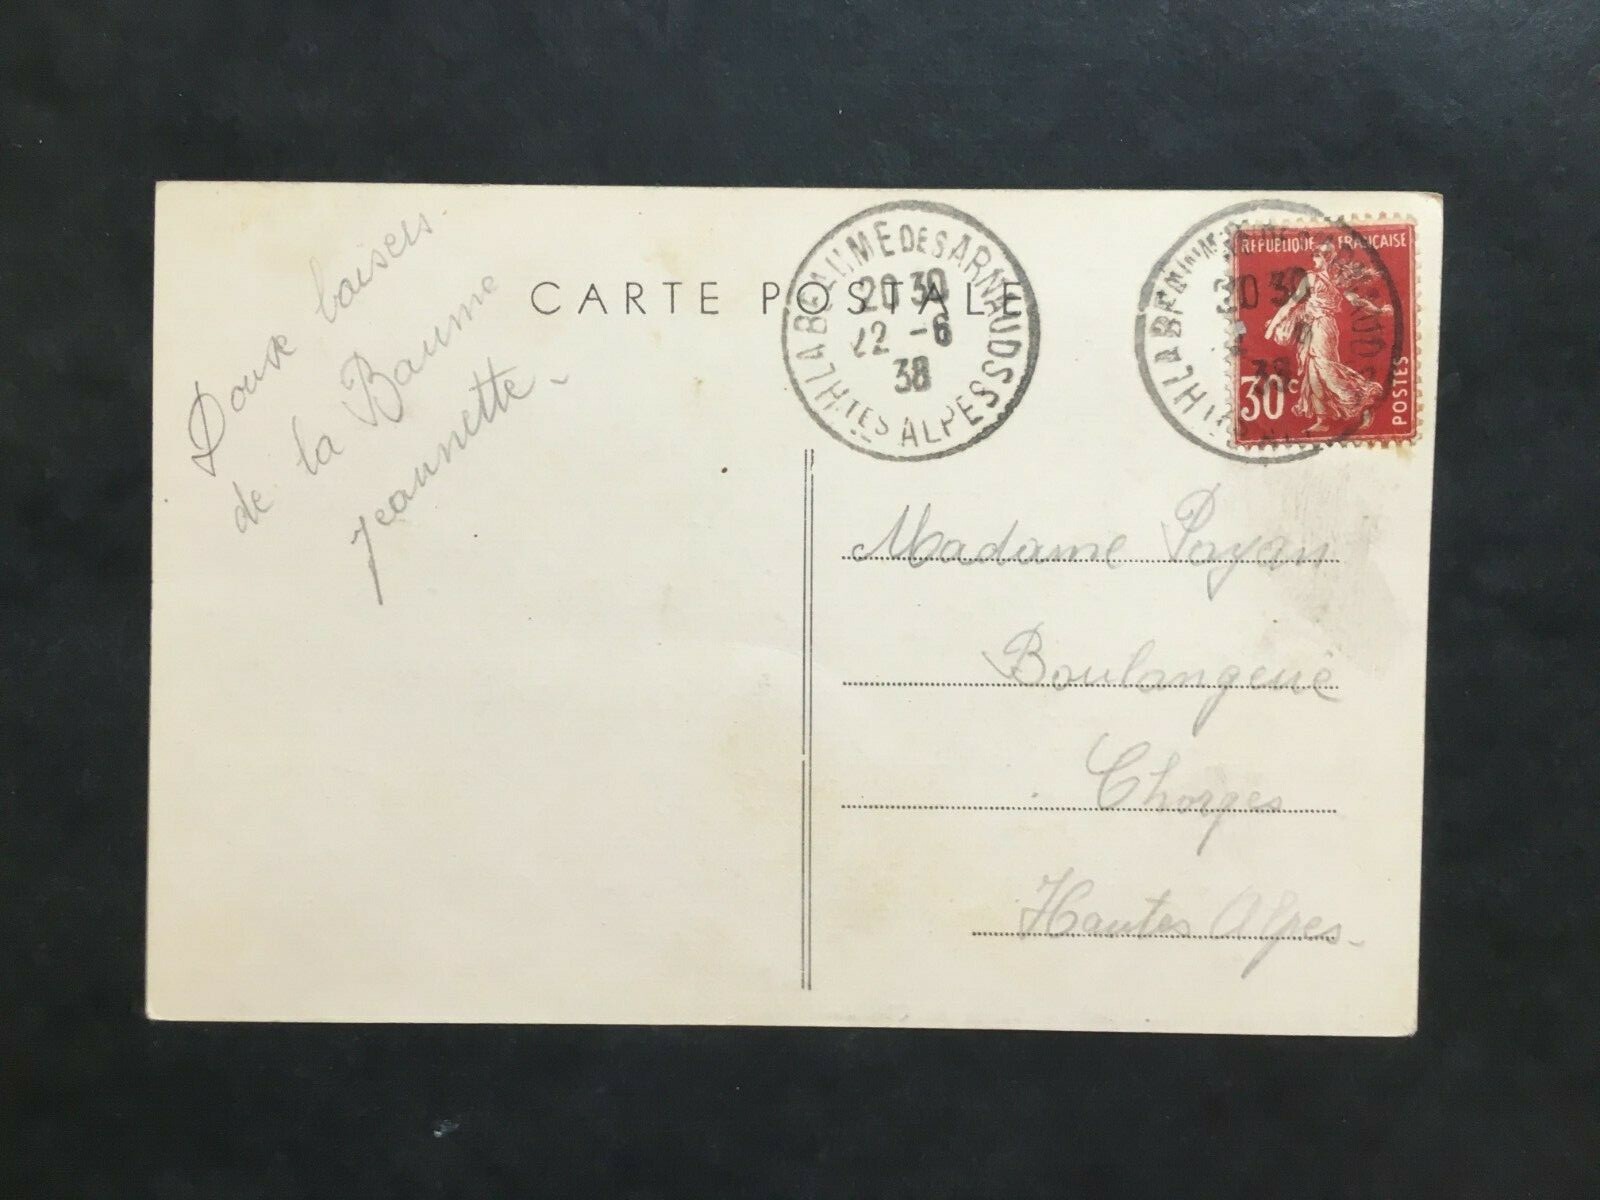 Doux baisers.
de la Baume
Jeannette.
CARTE POSTALE
LA BEAUME DES ARNAUDS
20 30
22 -6
38
HTES ALPES
LA BEAUME DES ARNAUDS
20 30
38
REPUBLIQUE FRANÇAISE
30c
POSTES
Madame Payan
Boulangerie
Chorges
Hautes Alpes.